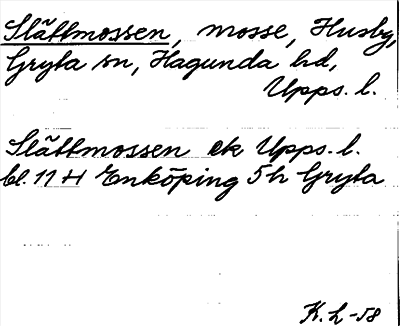 Slättmossen, mosse, Husby,
Gryta sn, Hagunda hd,
Upps. l.
Slättmossen ek Upps. l.
bl. 11 H Enköping 5 h Gryta
K. L -58